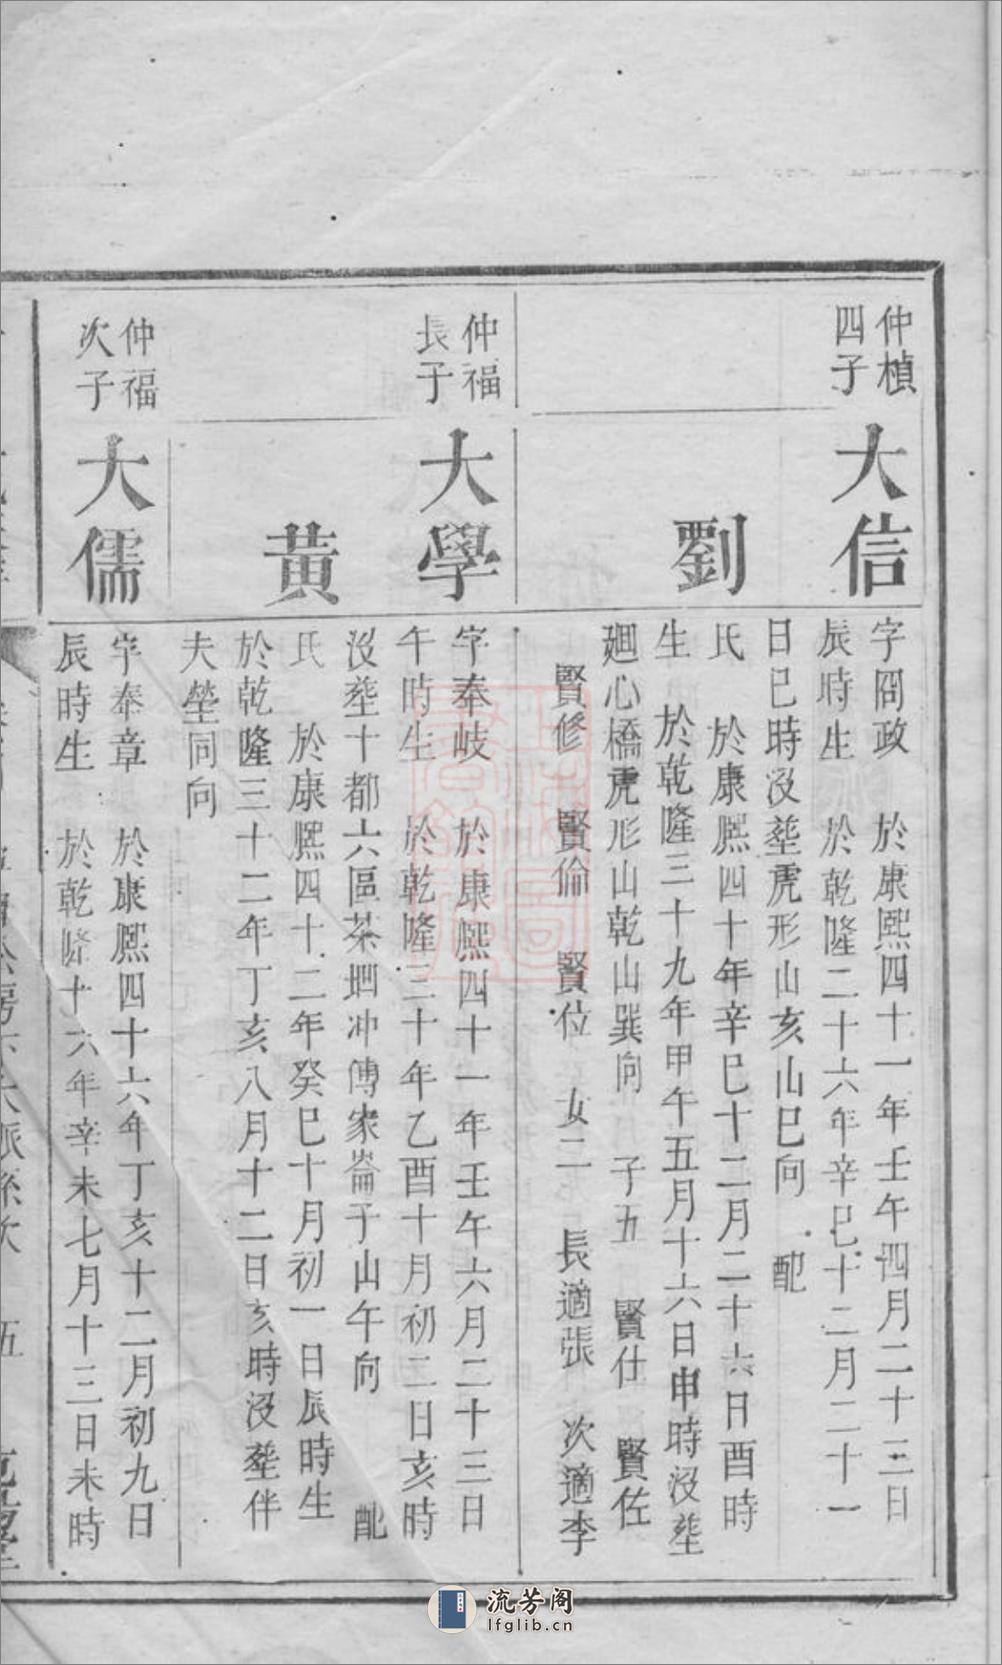 仲楨
四子
大信
字岡政 於康熙四十一年壬午四月二十三日
辰時生 於乾隆二十六年辛巳十二月二十一
日巳時没塟虎形山亥山巳向 配
劉
氏 於康熙四十年辛巳十二月二十六日酉時
生 於乾隆三十九年甲午五月十六日申時没塟
廻心橋虎形山乾山巽向 子五 賢仕 賢佐
賢修 賢倫 賢位 女二 長適張 次適李
仲福
長子
大學
字奉岐 於康熙四十一年壬午六月二十三日
午時生 於乾隆三十年乙酉十月初二日亥時
没塟十都六區茶冲傅家崙子山午向 配
黃
氏 於康熙四十二年癸巳十月初一日辰時生
於乾隆三十二年丁亥八月十二日亥時没塟伴
夫塋同向
仲福
次子
大儒
字奉章 於康熙四十六年丁亥十二月初九日
辰時生 於乾隆十六年辛未七月十三日未時
伍
流芳阁
lfglib.cn